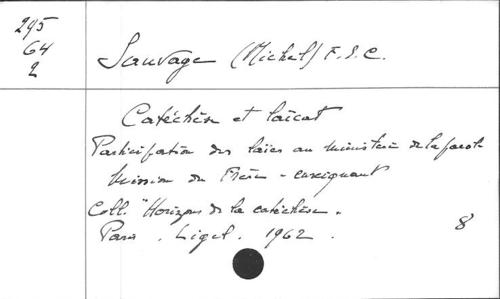 295
64
2
Sauvage (Michel) F.S.C.
Catéchèse et laïcat
Participation des laïcs au ministère de la parole
Mission du Frère-enseignant
Coll. "Horizons de la catéchèse".
Paris. Ligel. 1962. 8°